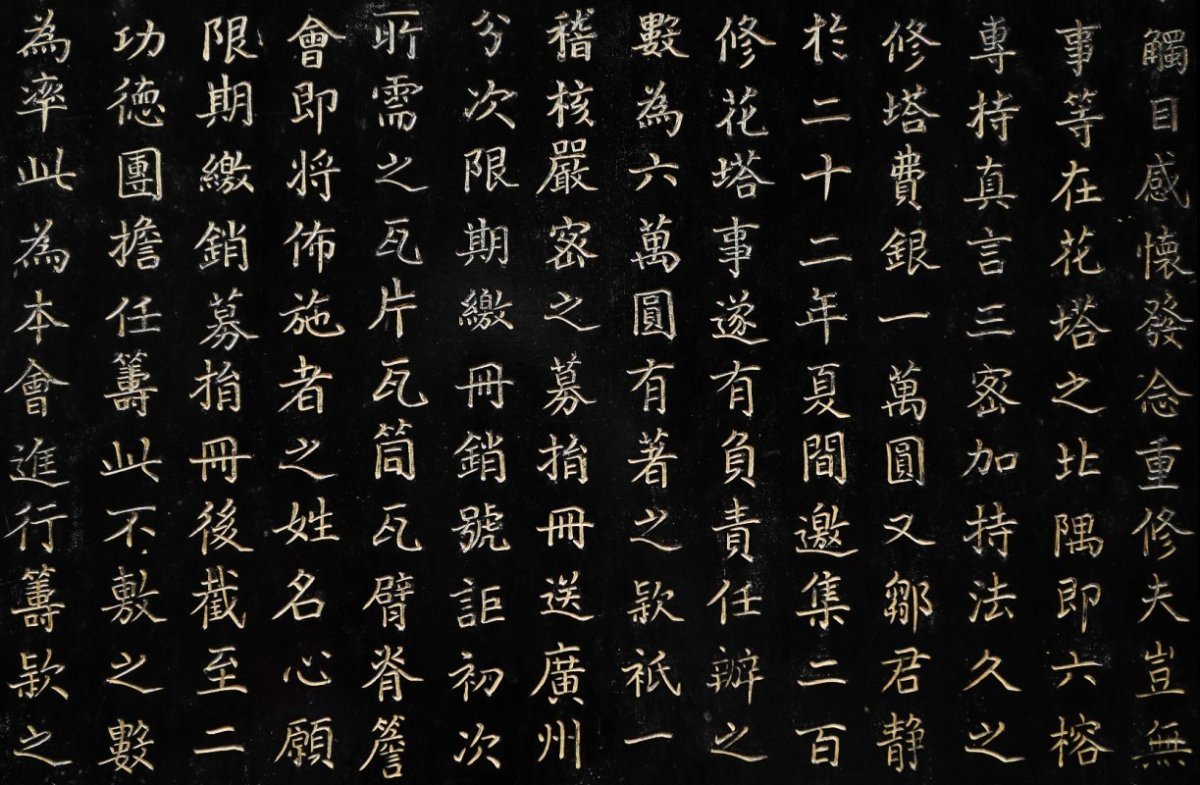 觸目感懷發念重修夫豈無
事等在花塔之北隅即六榕
專持真言三密加持法久之
修塔費銀一萬圓又鄒君静
於二十二年夏間邀集二百
修花塔事遂有負責任辦之
數為六萬圓有著之款祇一
稽核嚴密之募捐冊送廣州
分次限期繳冊銷號詎初次
所需之瓦片瓦筒瓦臂脊簷
會即將佈施者之姓名心願
限期繳銷募捐冊後截至二
功德團擔任籌此不敷之數
為率此為本會進行籌款之